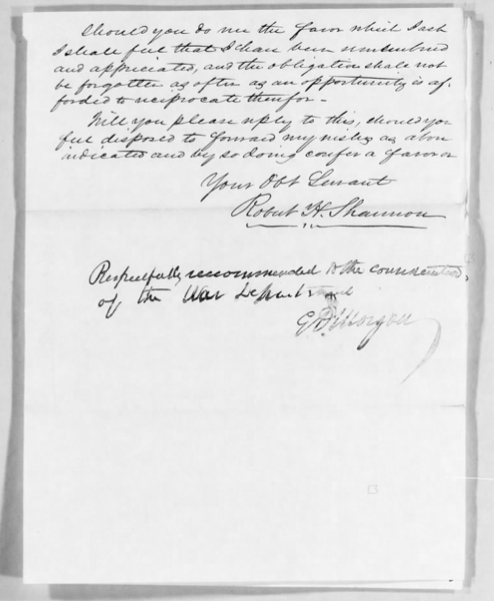 Should you do me the favor which I ask
I shall feel that I have been remembered
and appreciated, and the obligation shall not
be forgotten as often as an opportunity is af-
forded to reciprocate therefor.
Will you please reply to this, should you
feel disposed to forward my wishes as above
indicated and by so doing confer a favor on
Your Obt Servant
Robert H. Shannon
Respectfully recommended to the consideration
of the War Department
E D Morgan